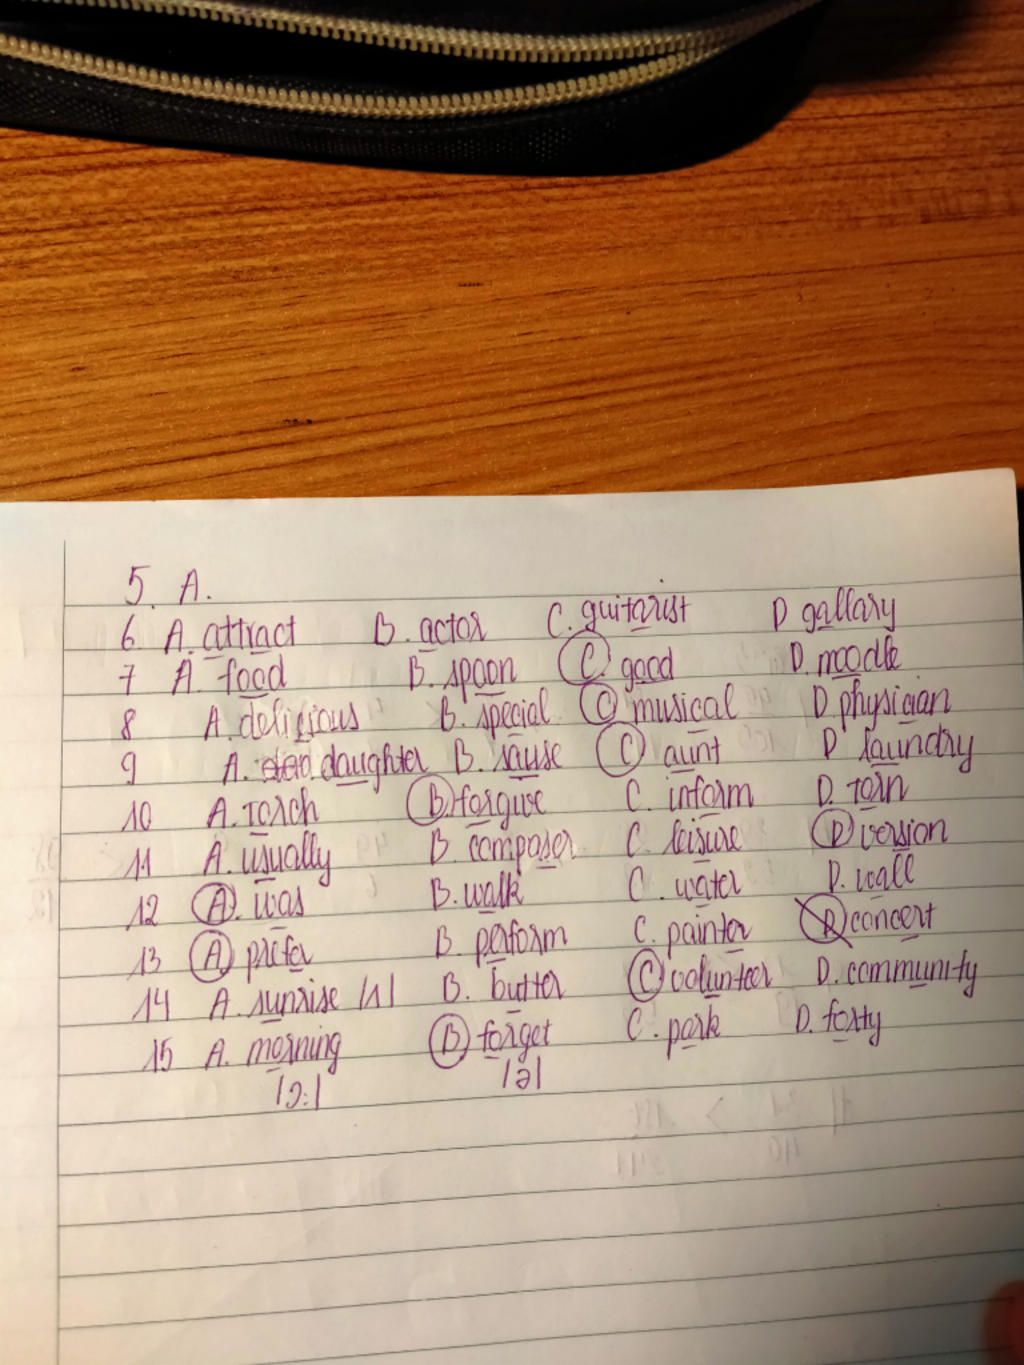 5. A.
6 A. attract B. actor C. guitarist D gallary
7 A. food B. spoon C. good D. noodle
8 A. delicious B. special C musical D physician
9 A. daughter B. sause C aunt D laundry
10 A. torch B. forgive C. inform D. torn
11 A. usually B. composer C leisure D version
12 A. was B. walk C. water D. wall
13 A prefer B. perform C. painter D concert
14 A. sunrise /ʌ/ B. butter C volunteer D. community
15 A. morning B forget C. pork D. forty
/ɔ:/ /ə/